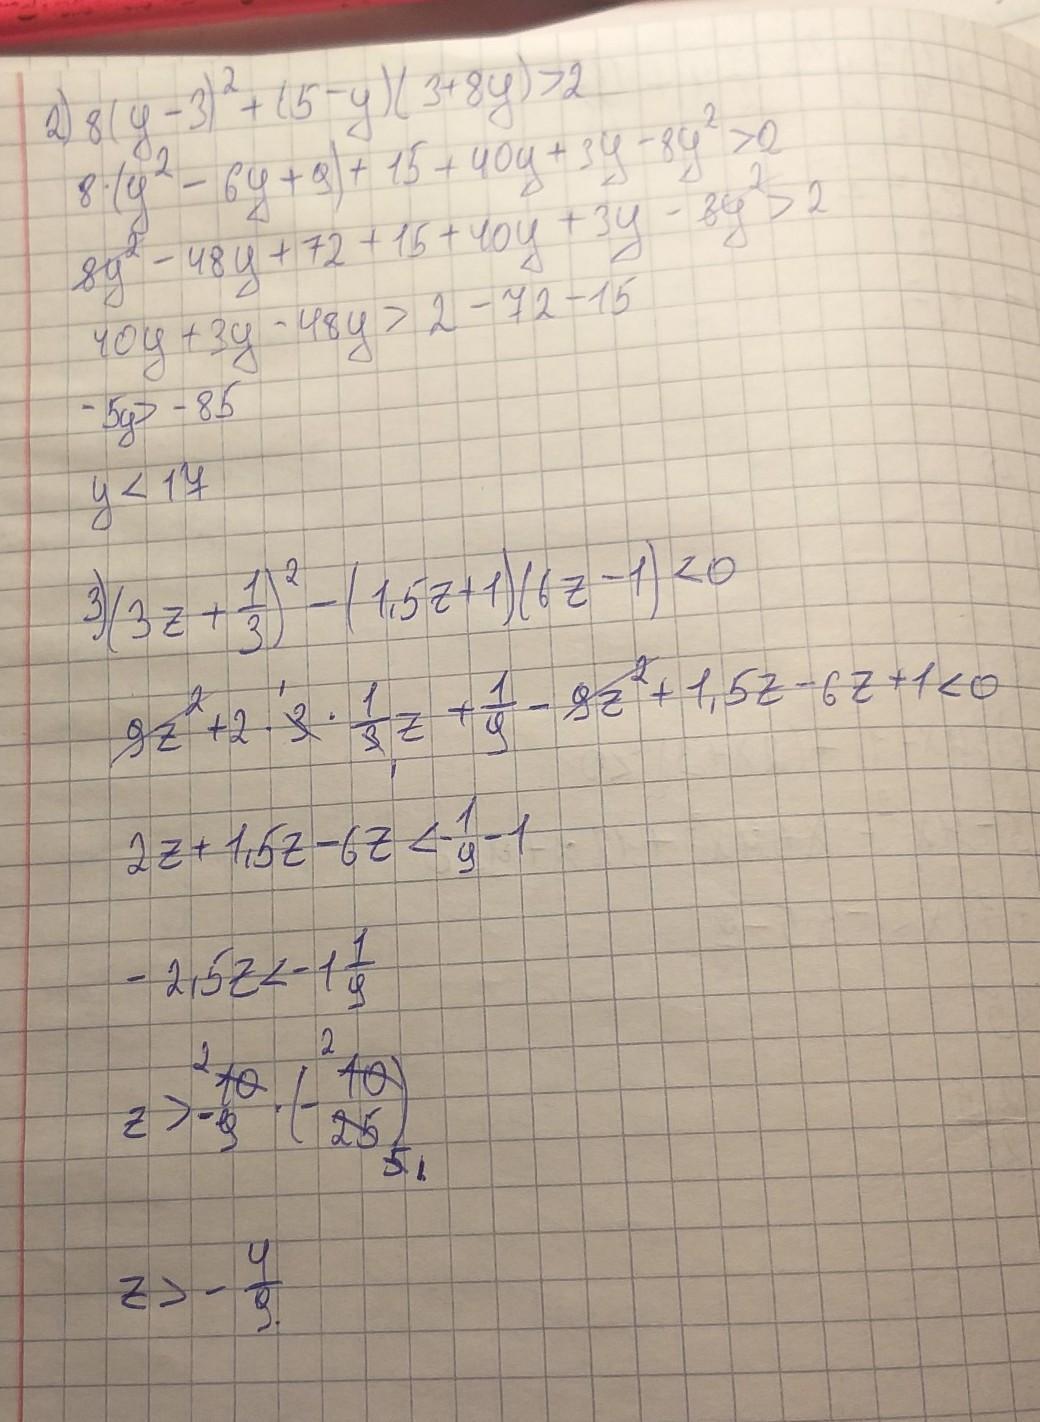 2) 8(y-3)² + (5-y)(3+8y)>2
8·(y² - 6y+9)+15+40y+3y-8y²>0
8y² - 48y+72+15+40y+3y-8y²>2
40y+3y-48y>2-72-15
-5y>-85
y<17
3)(3z+1/3)² - (1,5z+1)(6z-1)<0
9z²+2·3·1/3z+1/9-9z²+1,5z-6z+1<0
2z+1,5z-6z<-1/9-1
-2,5z<-1 1/9
z>-10/9·(-10/25)
z>-4/9.